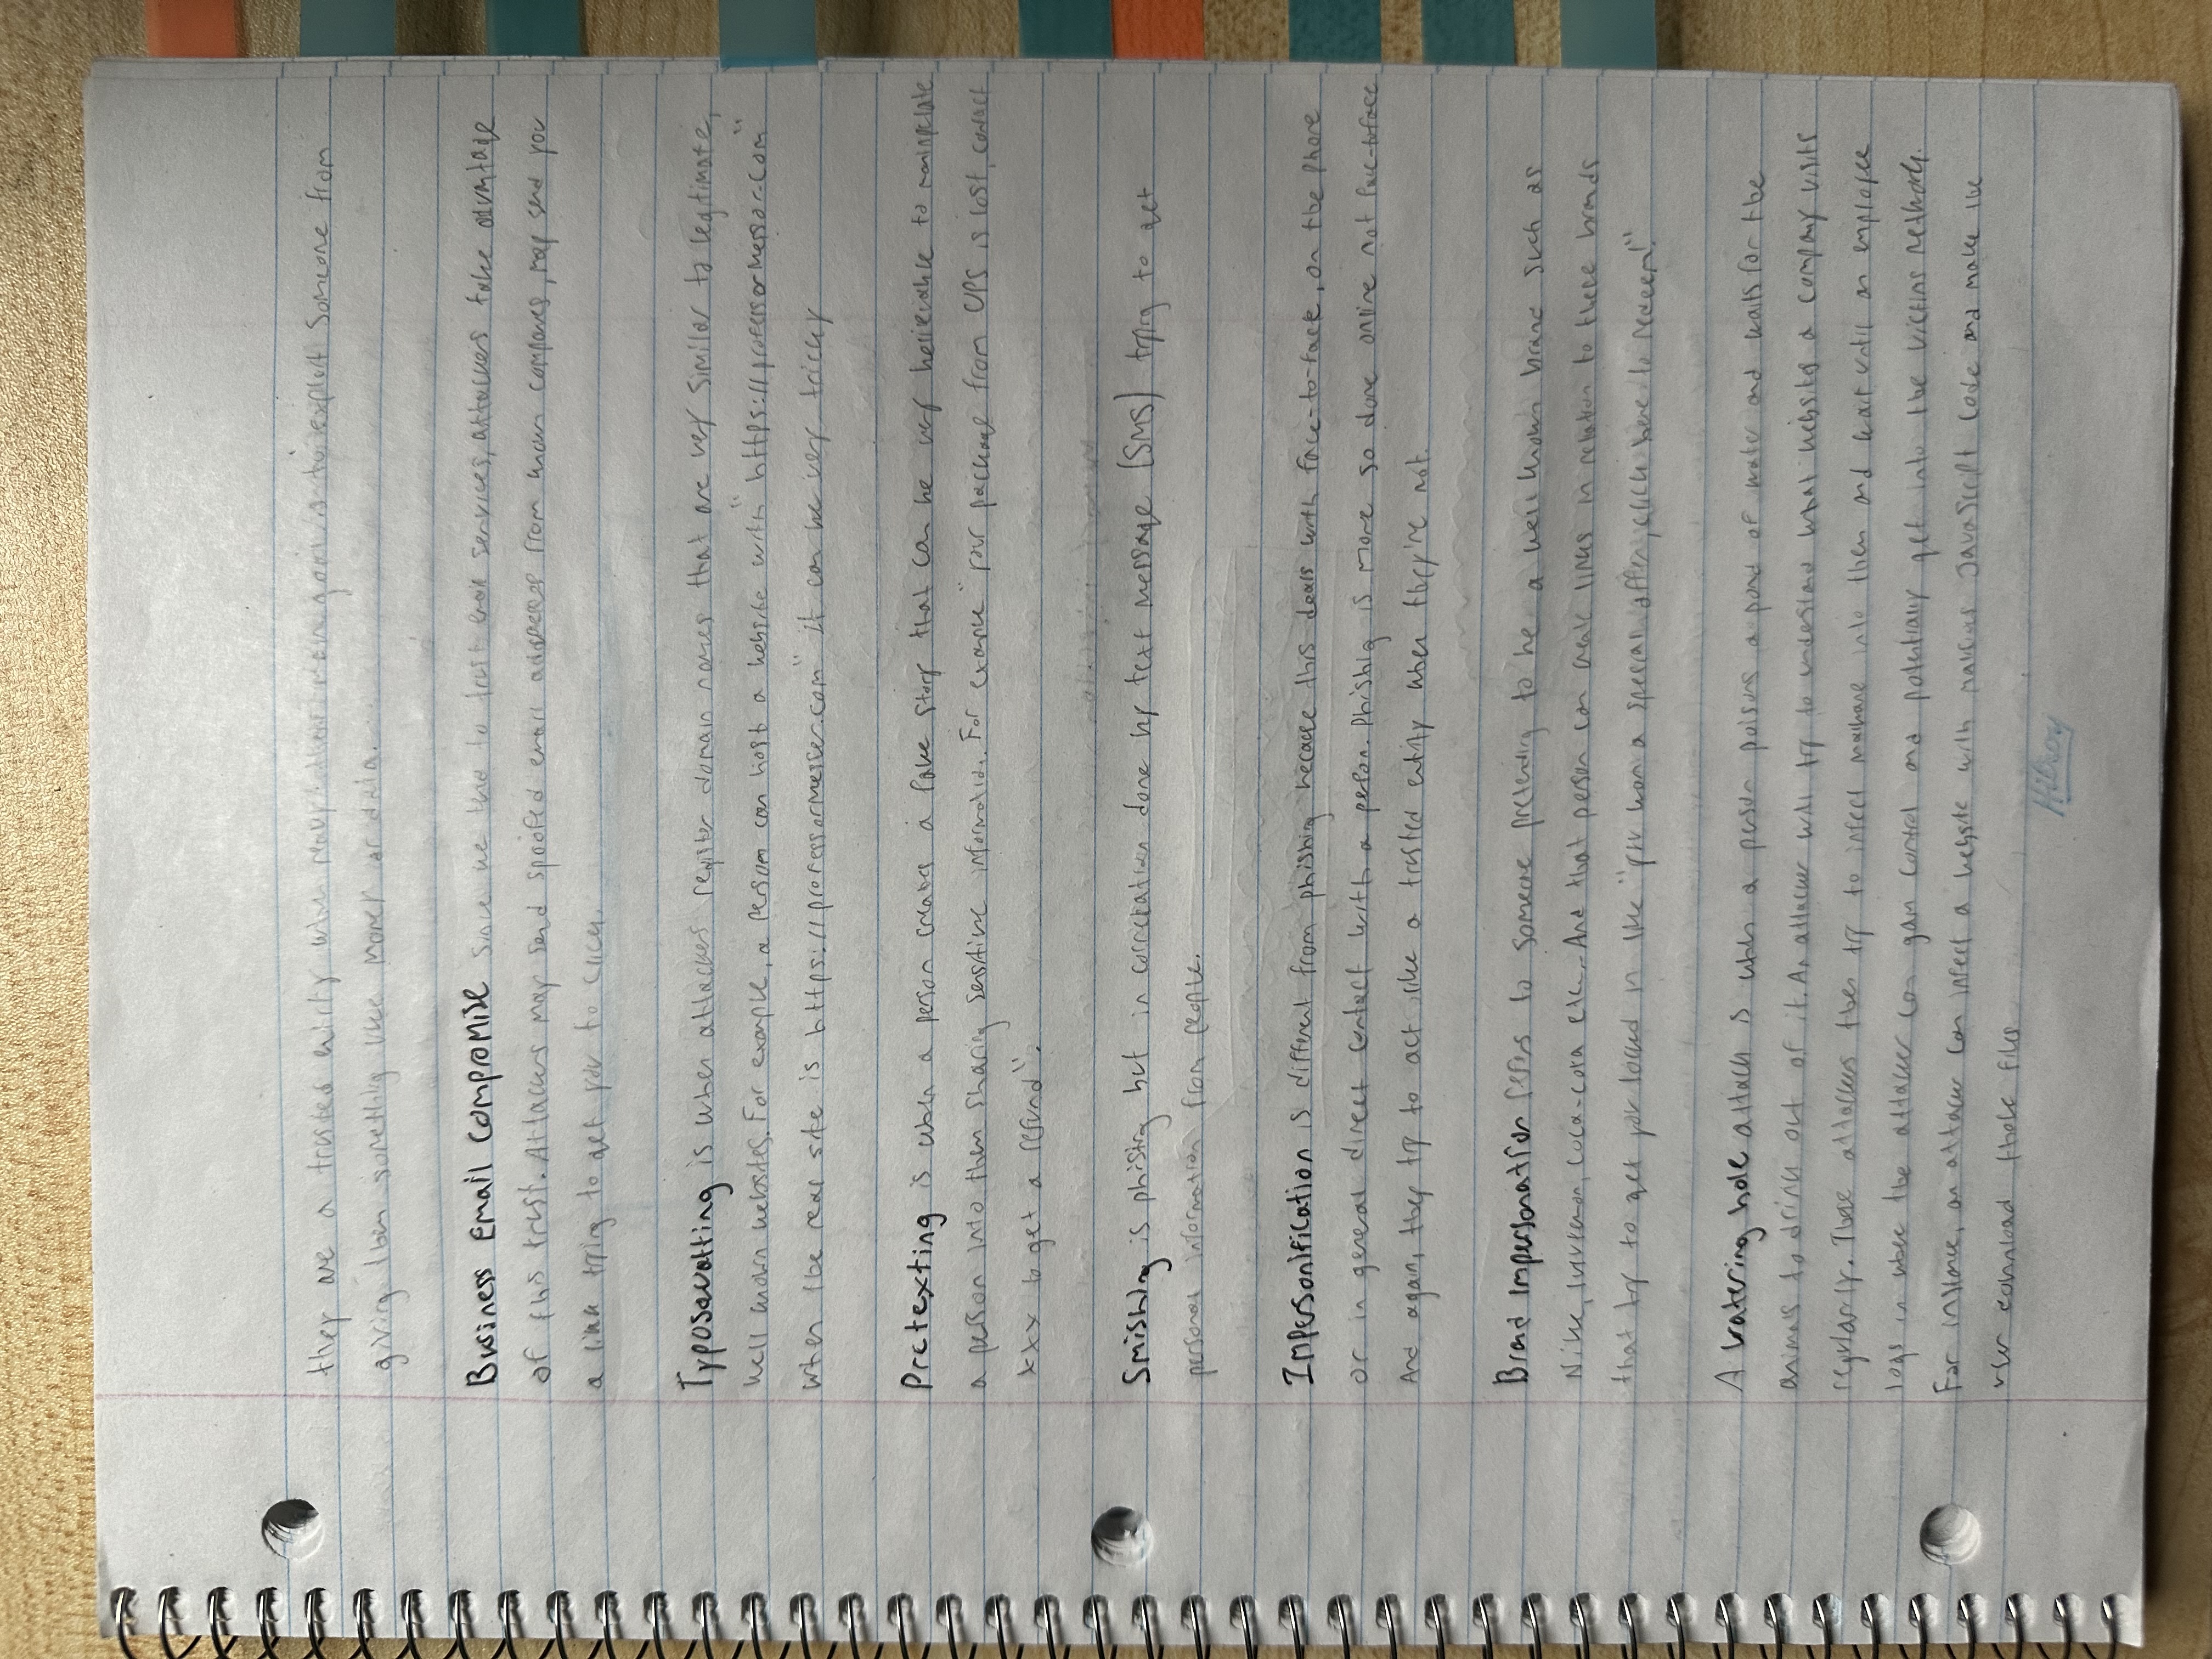 they are a trusted entity when really their main goal is to exploit someone from
giving them something like money or data.
Business Email Compromise Since we tend to trust email services, attackers take advantage
of this trust. Attackers may send spoofed email addresses from known companies, may send you
a link trying to get you to click.
Typosquatting is when attackers register domain names that are very similar to legitimate,
well known websites. For example, a person can host a website with "https://professormessor.com"
when the real site is https://professormesser.com" it can be very tricky
Pretexting is when a person creates a fake story that can be very believable to manipulate
a person into them sharing sensitive information. For example "your package from UPS is lost, contact
xxx to get a refund".
Smishing is phishing but in correlation done by text message (SMS) trying to get
personal information from people.
Impersonification is different from phishing because this deals with face-to-face, on the phone
or in general direct contact with a person. Phishing is more so done online not face-to-face
And again, they try to act like a trusted entity when they're not.
Brand impersonation refers to someone pretending to be a well known brand such as
Nike, lululemon, Coca-cola etc. And that person can create links in relation to these brands
that try to get you locked in like "you won a special offer, click here to redeem!"
A watering hole attack is when a person poisons a pond of water and waits for the
animals to drink out of it. An attacker will try to understand what websites a company visits
regularly. These attackers then try to infect malware into them and wait until an employee
logs in where the attacker can gain control and potentially get into the victims network.
For instance, an attacker can infect a website with malicious JavaScript code and make the
user download those files
Hilroy